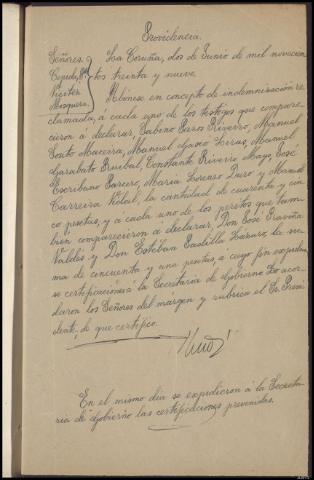 Providencia.
Señores. La Coruña, dos de Junio de mil novecien
Cepeda, tos treinta y nueve.
Vicites Abónese en concepto de indemnización re
Mosquera clamada, á cada uno de los testigos que compare
cieron á declarar, Sabino Pazos Riveiro, Manuel
Souto Maceira, Manuel Lema, Manuel
Garabato Ruibal, Constante Riveiro Mayo, José
Escribano Parcero, María Lorenzo Duro y Manuel
Carreira Vidal, la cantidad de cuarenta y cin
co pesetas, y á cada uno de los peritos que tam
bién comparecieron á declarar, Don José
Valdés y Don Esteban Padilla, la su
ma de cincuenta y una pesetas, á cuyo fin expídan
se certificaciones á la Secretaría de Gobierno. Lo acor
daron los Señores del margen y rubrica el Sr. Presi
dente, de que certifico.
En el mismo día se expidieron á la Secreta
ría de Gobierno las certificaciones prevenidas.